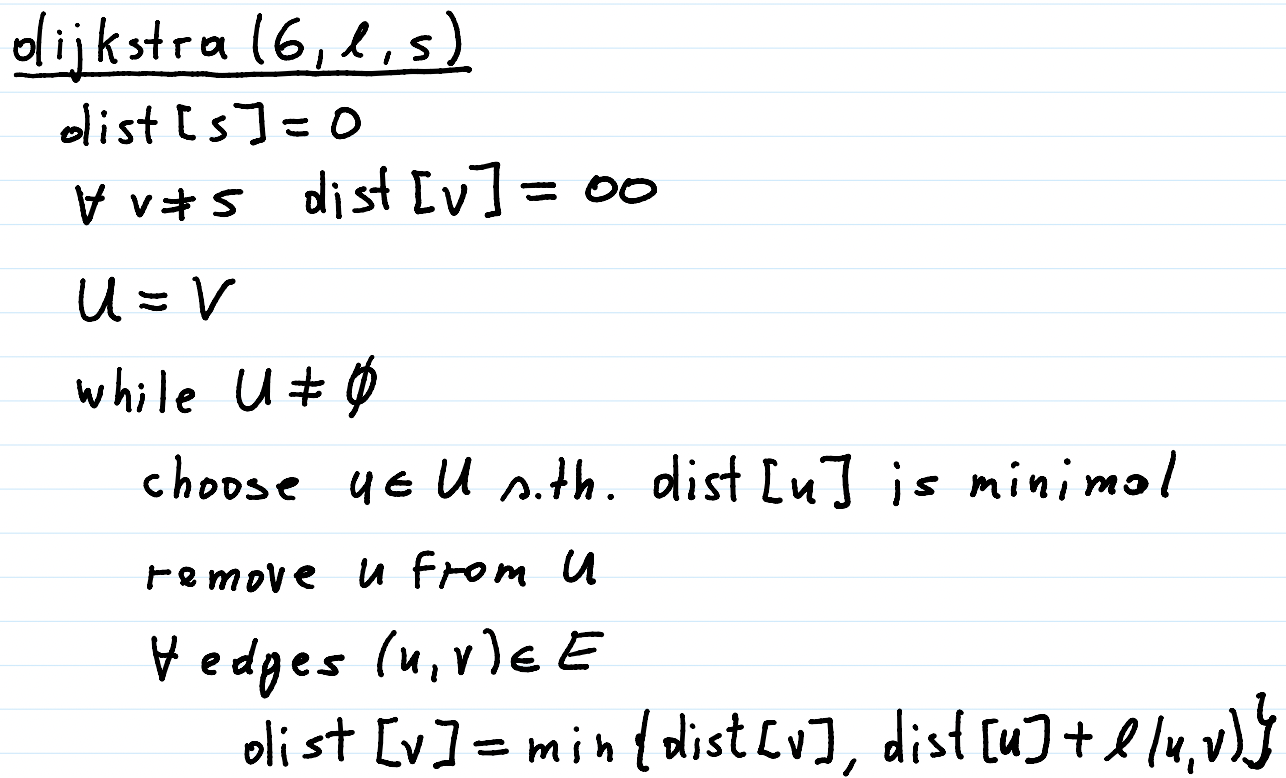 dijkstra(G, ℓ, s)
dist[s] = 0
∀ v ≠ s dist[v] = ∞
U = V
while U ≠ ∅
choose u ∈ U s.th. dist[u] is minimal
remove u from U
∀ edges (u, v) ∈ E
dist[v] = min{dist[v], dist[u] + ℓ(u, v)}